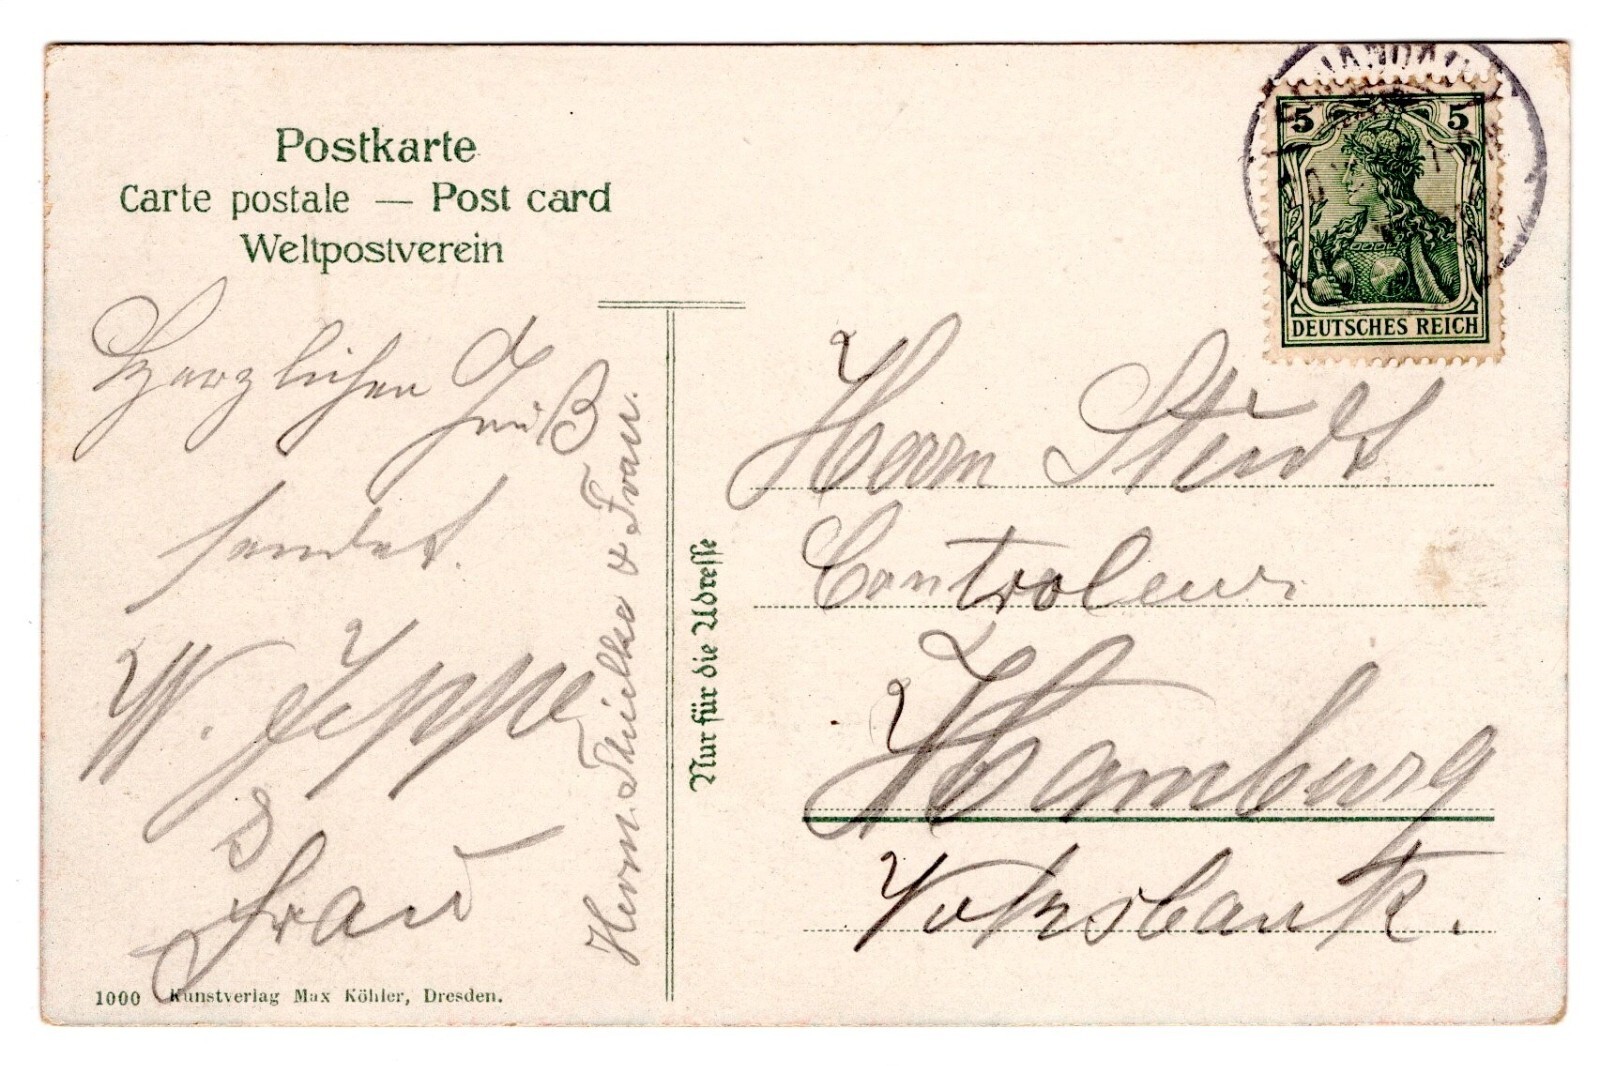 Postkarte
Carte postale — Post card
Weltpostverein
Herzlichen
Gruß
sendet.
W. Jeppe
&
Frau
Herm. Thielke & Frau.
1000 Kunstverlag Max Köhler, Dresden.
Nur für die Adresse
5 5
DEUTSCHES REICH
Herrn Studt
Controleur
Hamburg
Volksbank.